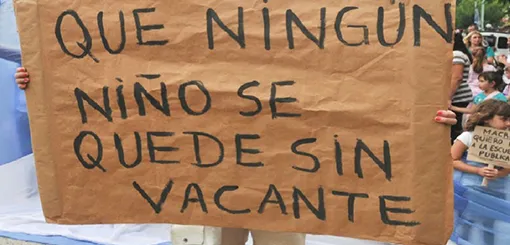 QUE NINGÚN
NIÑO SE
QUEDE SIN
VACANTE
QUIERO
A LA ESCUELA
PÚBLICA